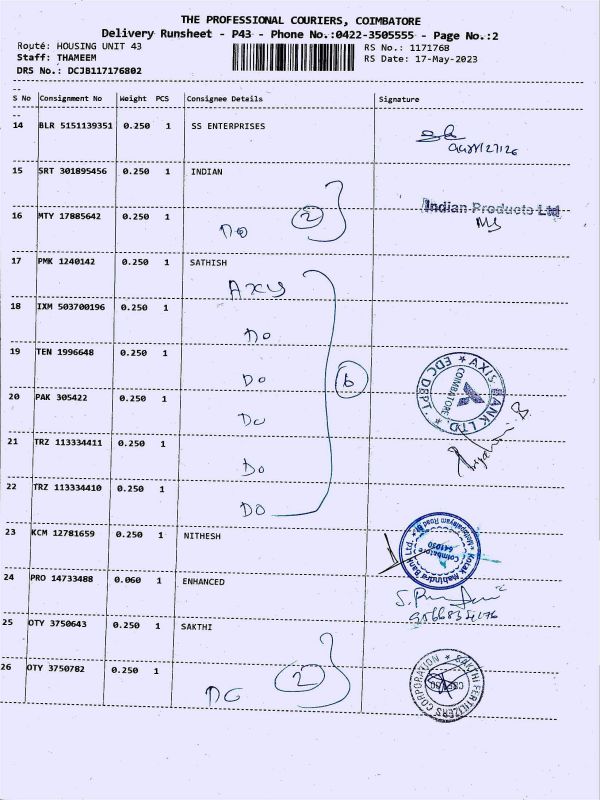 THE PROFESSIONAL COURIERS, COIMBATORE
Delivery Runsheet - P43 - Phone No.:0422-3505555 - Page No.:2
Route: HOUSING UNIT 43 RS No.: 1171768
Staff: THAMEEM RS Date: 17-May-2023
DRS No.: DCJB117176802
S No Consignment No Weight PCS Consignee Details Signature
14 BLR 5151139351 0.250 1 SS ENTERPRISES
15 SRT 301895456 0.250 1 INDIAN
Indian Products Ltd
16 MTY 17885642 0.250 1
Do 2
17 PMK 1240142 0.250 1 SATHISH
Axis
18 IXM 503700196 0.250 1
Do
19 TEN 1996648 0.250 1
Do 6
AXIS BANK LTD. EDC DEPT. COIMBATORE
20 PAK 305422 0.250 1
Do
21 TRZ 113334411 0.250 1
Do
22 TRZ 113334410 0.250 1
DO
23 KCM 12781659 0.250 1 NITHESH
Kotak Mahindra Bank Ltd. Mettupalayam Road Coimbatore
24 PRO 14733488 0.060 1 ENHANCED
25 OTY 3750643 0.250 1 SAKTHI
26 OTY 3750782 0.250 1
Do 2
SAKTHI FERTILIZERS CORPORATION